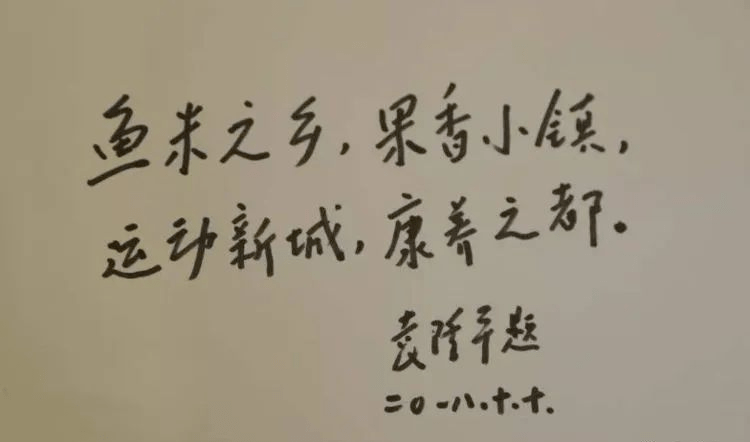 鱼米之乡，果香小镇，
运动新城，康养之都。
袁隆平题
二〇一八.十.十.